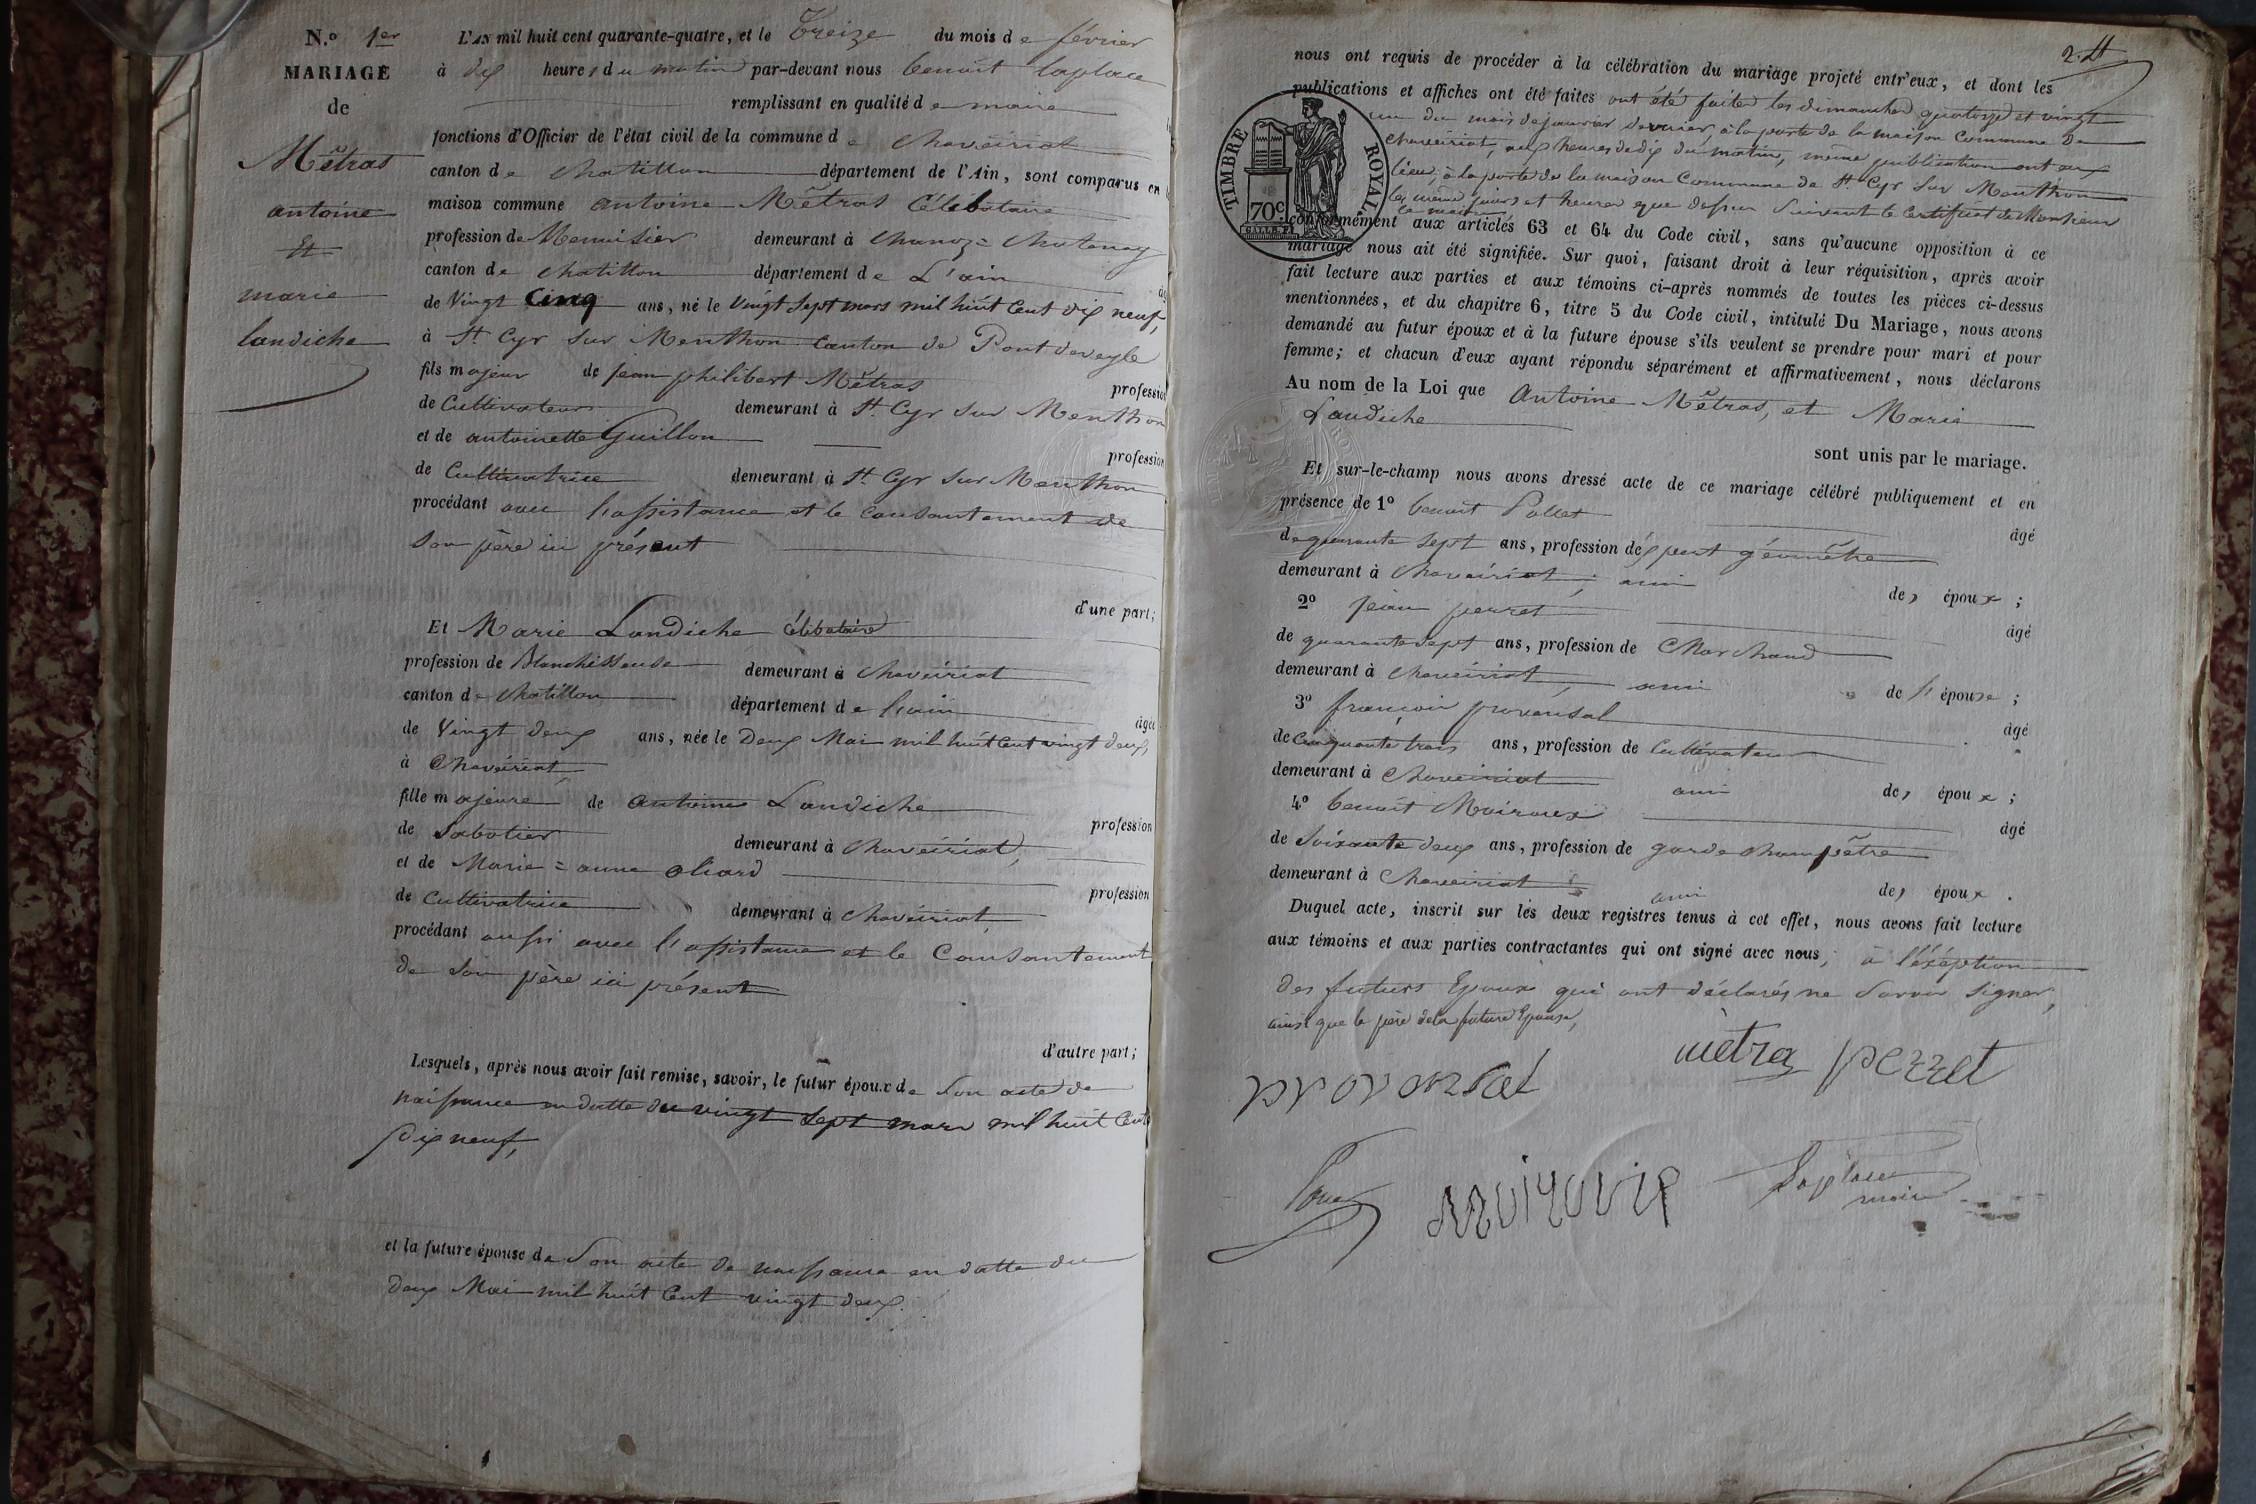 N.o 1er
MARIAGE
de
Mêtras
antoine
Et
marie
landiche
L'AN mil huit cent quarante-quatre, et le treize du mois de février
à dix heures du matin par-devant nous benoît laplace
remplissant en qualité de maire
fonctions d'Officier de l'état civil de la commune de chaveiriat
canton de chatillon département de l'Ain, sont comparus en la
maison commune antoine Mêtras Célibataire
profession de Menuisier demeurant à chanoz=chatenay
canton de chatillon département de L'ain
de Vingt Cinq ans, né le vingt Sept mars mil huit Cent dix neuf,
à St Cyr Sur Menthon canton de Pont deveyle
fils majeur de jean philibert Mêtras profession
de Cultivateur demeurant à St Cyr Sur Menthon
et de antoinette Guillon profession
de Cultivatrice demeurant à St Cyr Sur Menthon
procédant avec l'assistance et le Consantement de
Son père ici présent
d'une part;
Et Marie Landiche célibataire
profession de Blanchisseuse demeurant à chaveiriat
canton de chatillon département de l'ain agée
de Vingt deux ans, née le Deux Mai mil huit Cent vingt deux,
à Chaveiriat,
fille majeure de antoine Landiche profession
de Sabotier demeurant à chaveiriat,
et de Marie=anne oliard profession
de Cultivatrice demeurant à chaveiriat,
procédant aussi avec l'assistance et le Consantement
de Son père ici présent
d'autre part;
Lesquels, après nous avoir fait remise, savoir, le futur époux de Son acte de
naissance en datte du vingt Sept mars mil huit Cent
dix neuf,
et la future épouse de Son acte de naissance en datte du
deux Mai mil huit Cent vingt deux.
2.
nous ont requis de procéder à la célébration du mariage projeté entr'eux, et dont les
publications et affiches ont été faites ont été faites les dimanches quatorze et vingt
un du mois de janvier dernier, à la porte de la maison Commune de
chaveiriat, aux heures de dix du matin, même publication ont eu
lieu, à la porte de la maison Commune de St Cyr Sur Menthon
les même jours et heures que dessus Suivant le Certificat de Monsieur
le maire
conformément aux articles 63 et 64 du Code civil, sans qu'aucune opposition à ce
mariage nous ait été signifiée. Sur quoi, faisant droit à leur réquisition, après avoir
fait lecture aux parties et aux témoins ci-après nommés de toutes les pièces ci-dessus
mentionnées, et du chapitre 6, titre 5 du Code civil, intitulé Du Mariage, nous avons
demandé au futur époux et à la future épouse s'ils veulent se prendre pour mari et pour
femme; et chacun d'eux ayant répondu séparément et affirmativement, nous déclarons
Au nom de la Loi que Antoine Mêtras, et Marie
Landiche
sont unis par le mariage.
Et sur-le-champ nous avons dressé acte de ce mariage célébré publiquement et en
présence de 1o benoît Pollet âgé
de quarante Sept ans, profession d'éxpert géomêtre
demeurant à chaveiriat, ami de, époux;
2o jean perret âgé
de quarante Sept ans, profession de Marchand
demeurant à chaveiriat, ami de l'épouse;
3o françois provensal âgé
de Cinquante trois ans, profession de Cultivateur
demeurant à chaveiriat ami de, époux;
4o benoît Moiroux âgé
de Soixante deux ans, profession de garde champêtre
demeurant à chaveiriat ami de, époux.
Duquel acte, inscrit sur les deux registres tenus à cet effet, nous avons fait lecture
aux témoins et aux parties contractantes qui ont signé avec nous, à l'éxeption
des futurs Epoux qui ont déclarés ne Savoir Signer,
ainsi que le père de la future Epouse,
mètra perret
provonsal
moiroux Laplace
maire
TIMBRE ROYAL
70c.